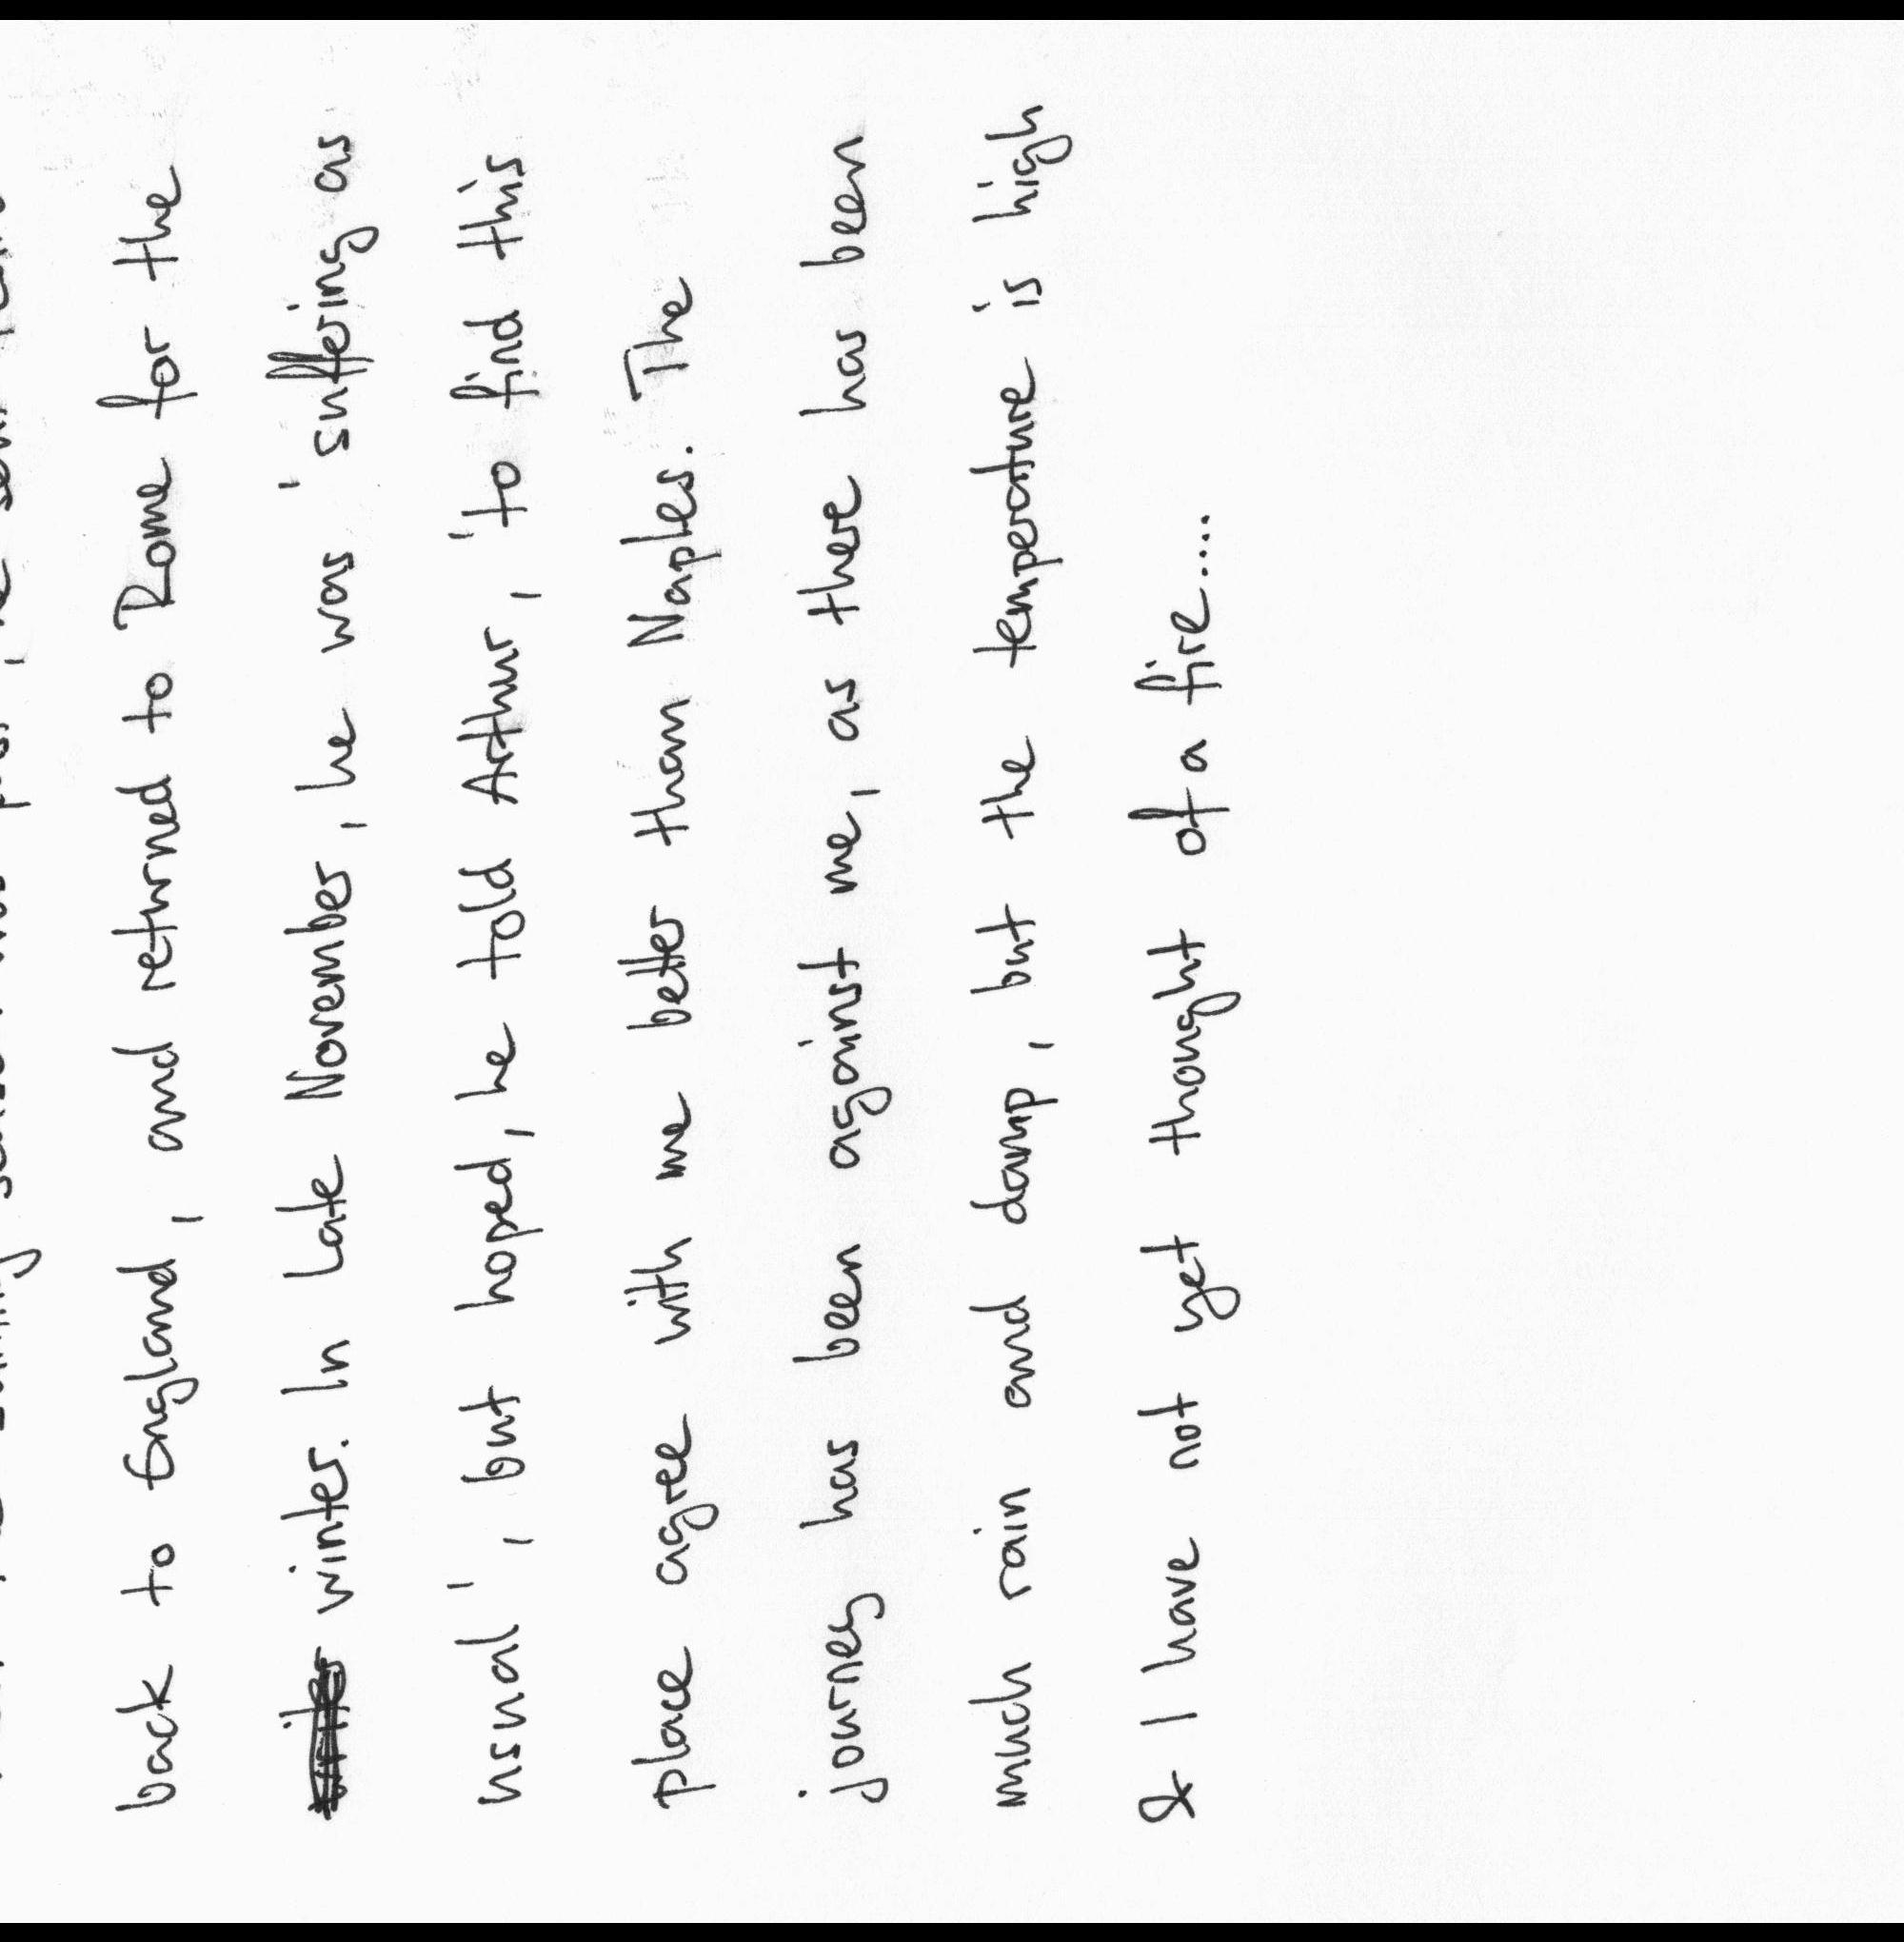 back to England, and returned to Rome for the
winter. In late November, he was 'suffering as
usual', but hoped, he told Arthur, 'to find this
place agree with me better than Naples. The
journey has been against me, as there has been
much rain and damp, but the temperature is high
& I have not yet thought of a fire.....